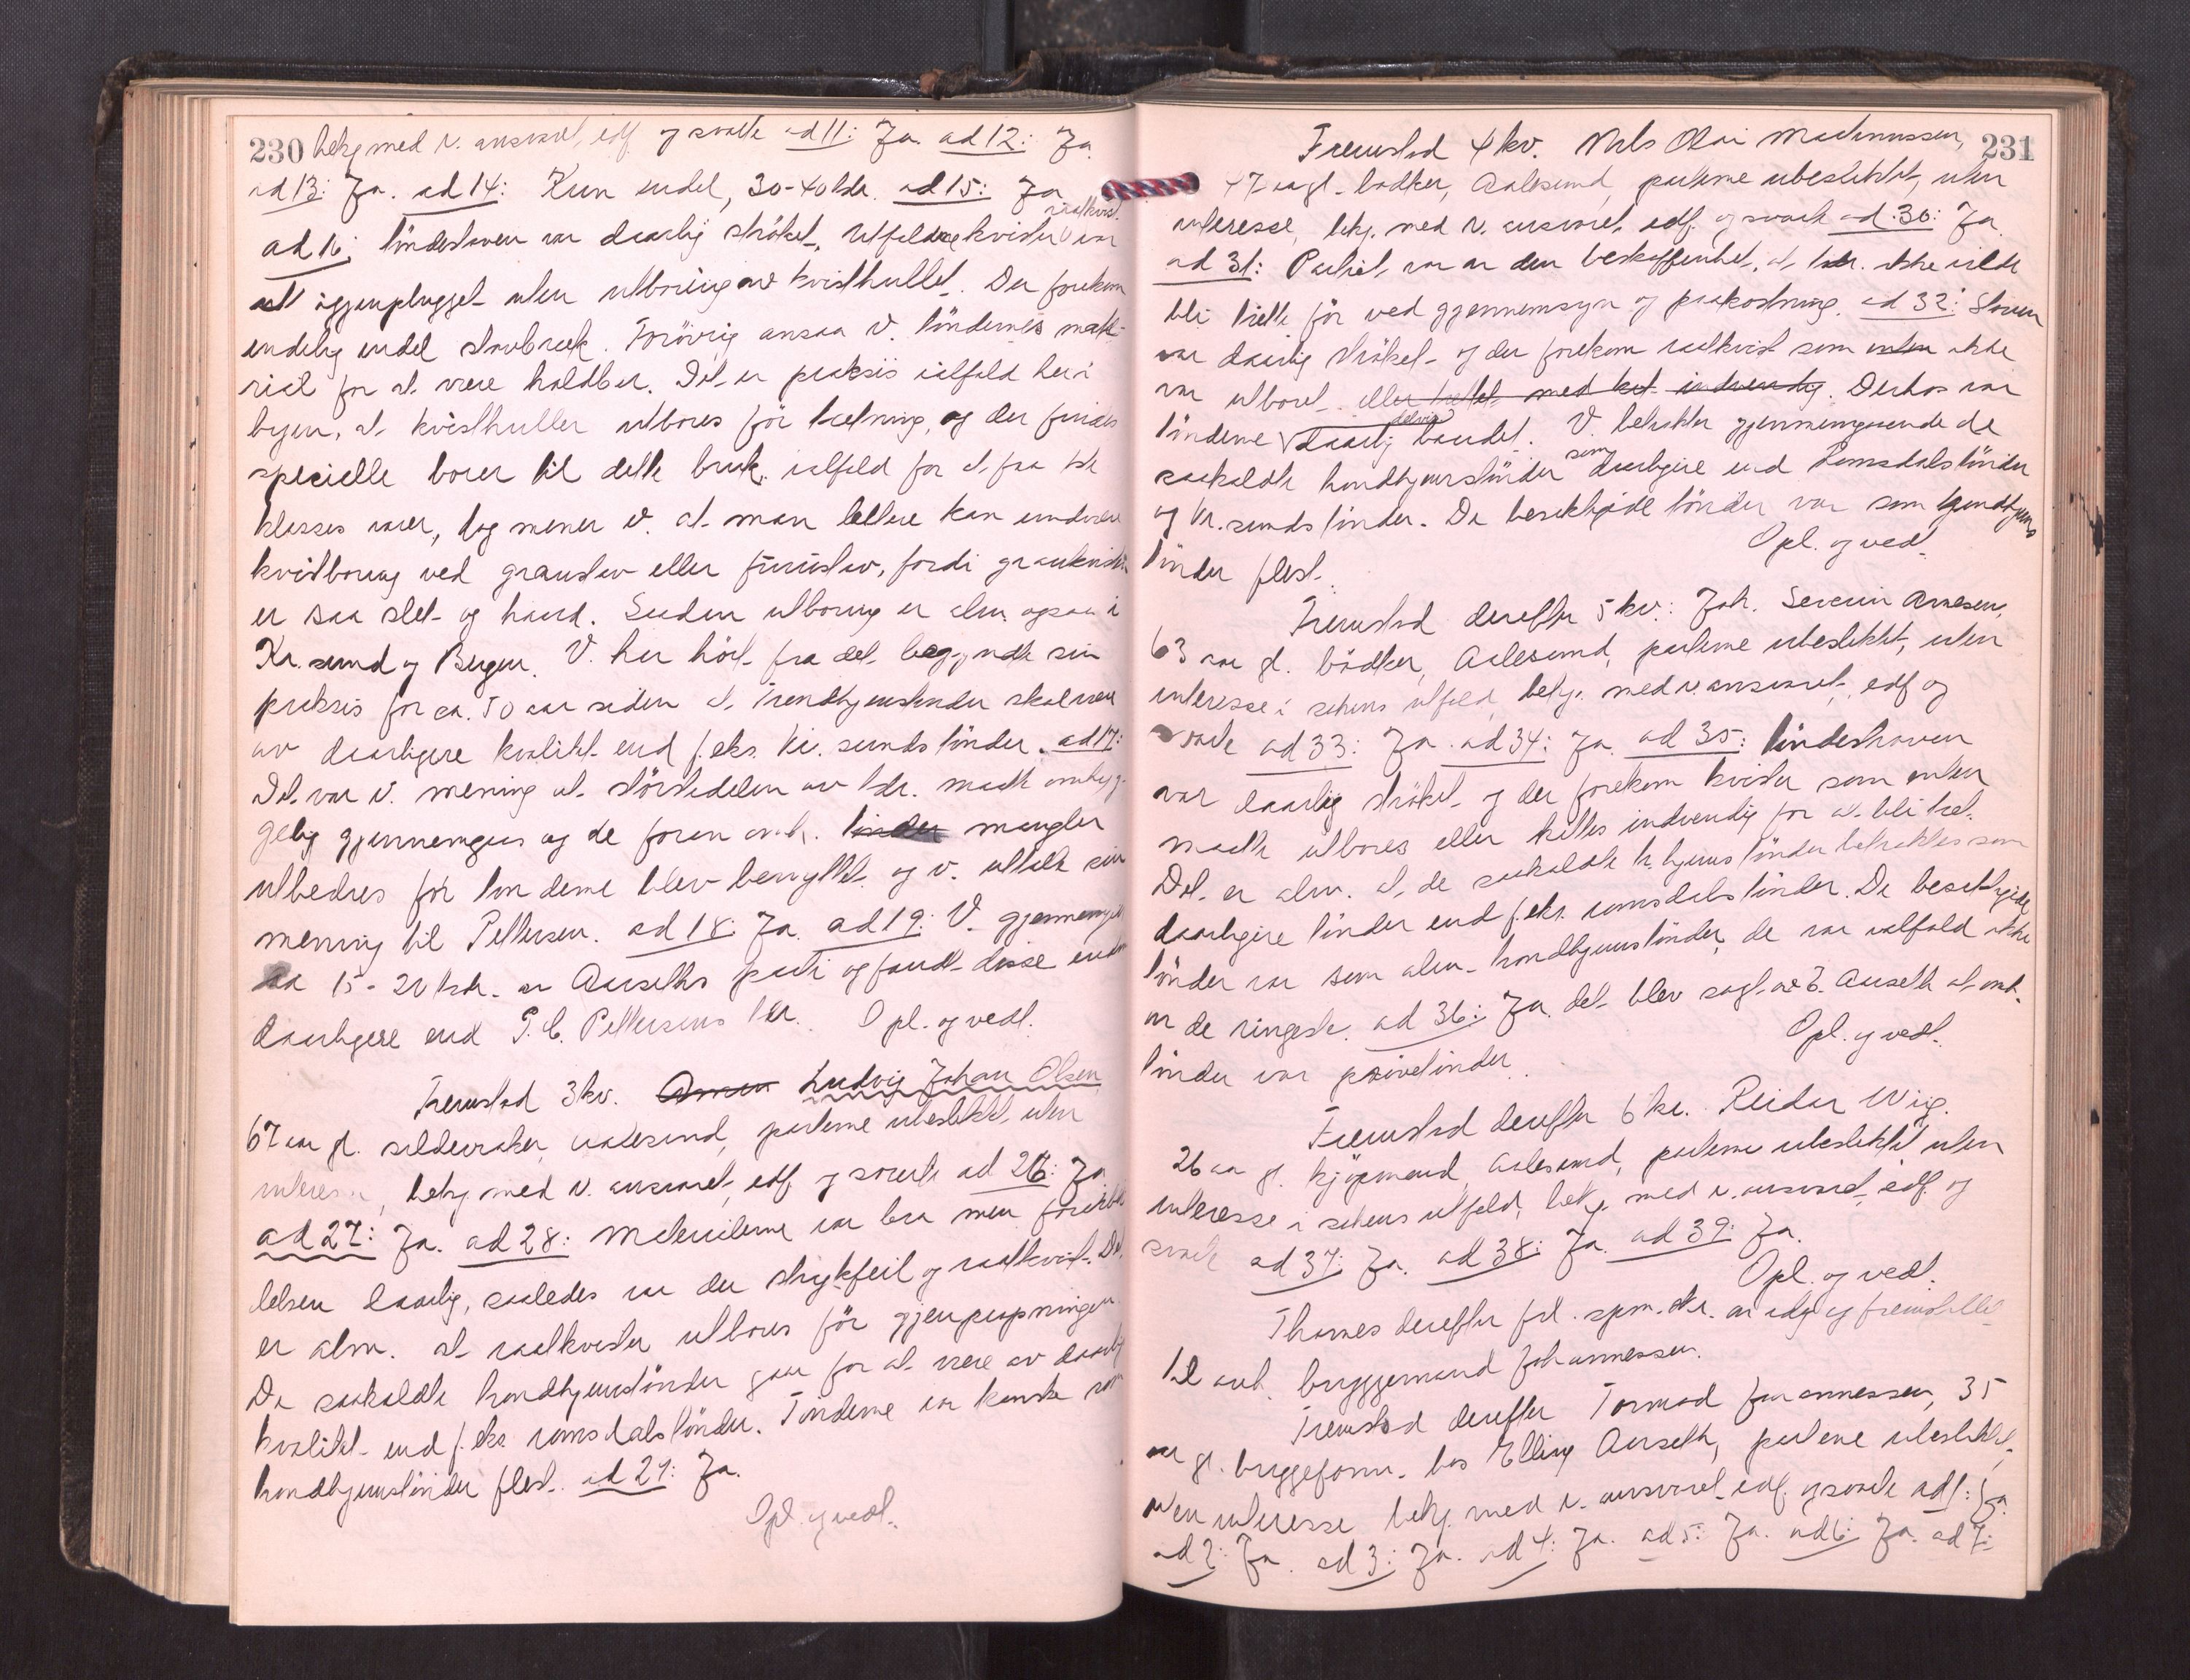 230 bekj med v. ansvaret, edf og svarte ad 11: Ja. ad 12: Ja.
ad 13: Ja. ad 14: Kun endel, 30-40 tdr. ad 15: Ja
ad 16: töndestaven var daarlig ströket, utfaldne kvister raatkvist. var
igjenplugget uten utboring av kvisthullet. Der forekom
endelig endel stavbræk. Forövrig ansaa V. töndernes mate-
rial for at være holdbar. Det er praksis ialfald her i
byen, at kvisthuller utbores för tætning, og der findes
specielle borer til dette bruk, ialfald for at faa 1ste
klasses varer, dog mener v. at man lettere kan undvære
kvistboring ved granstav eller furustav, fordi grankvisten
er saa slet og haard. Saadan utboring er alm. ogsaa i
Kr.sund og Bergen. V. har hört fra det begyndte sin
praksis for ca. 50 aar siden at Trondhjemstønder skal være
av daarligere kvalitet end f.eks. Kr.sunds tönder. ad 17:
Det var v. mening at störstedelen av tdr. maatte omhyg-
gelig gjennemgaas og de foran omh. tönder mangler
utbedres för tönderne blev benyttet og v. uttalte sin
mening til Pettersen. ad 18: Ja. ad 19: V. gjennemgik
ca 15-20 tdr. av Aarseths parti og fandt disse endnu
daarligere end P. C. Pettersens tdr. Opl. og vedt.
Fremstod 3 kv. Ludvig Johan Olsen
67 aar gl. sildevraker, Aalesund, parterne ubeslektet uten
interesse, bekj med v. ansvaret, edf. og svarte ad 26: Ja
ad 27: Ja. ad 28: Materialerne var bra men forarbei-
delsen daarlig, saaledes var der strykfeil og raatkvist. Det
er alm. at raatkvister utbores för gjenpropningen.
De saakaldte trondhjemstönder gaar for at være av daarlig
kvalitet end f.eks romsdalstönder. Tönderne var kanske som
trondhjemstönder flest. ad 29: Ja.
Opl. og vedt.
231
Fremstod 4 kv. Nils Olai Madsmussen,
47 aar gl. bödker, Aalesund, parterne ubeslektet, uten
interesse, bekj. med v. ansvaret, edf. og svarte ad 30: Ja
ad 31: Partiet var av den beskaffenhet, at tdr. ikke vilde
bli tætte för ved gjennemsyn og paakostning. ad 32: Staven
var daarlig ströket og der forekom raatkvist som enten ikke
var utboret eller tættet med kit indvendig. Derhos var
tönderne delvis daarlig baandet. V. betrakter gjennemgaaende de
saakaldte trondhjemstönder som daarligere end Romsdalstönder
og Kr.sunds tönder. De besiktigede tönder var som trondhjems
tönder flest. Opl. og vedt.
Fremstod derefter 5 kv.: Joh. Severin Arnesen,
63 aar gl. bödker, Aalesund, parterne ubeslektet, uten
interesse i sakens utfald, bekj. med v. ansvaret, edf og
svarte ad 33: Ja. ad 34: Ja. ad 35: töndestaven
var daarlig ströket og der forekom kvister som enten
maatte utbores eller kittes indvendig for at bli tæt.
Det er alm. at de saakaldte tr.hjems tönder betraktes som
daarligere tönder end f.eks. romsdalstönder. De besiktigede
tönder var som alm. trondhjemstönder, de var ialfald ikke
av de ringeste. ad 36: Ja, det blev sagt av E. Aarseth at omh.
tönder var prövetönder. Opl. og vedt.
Fremstod derefter 6 kv. Reidar Wiig.
26 aar gl. kjöpmand, Aalesund, parterne ubeslektet uten
interesse i sakens utfald, bekj. med v. ansvaret, edf. og
svarte ad 37: Ja. ad 38: Ja. ad 39: Ja.
Opl. og vedt.
Thomes derefter frl. spm. skr. av idag og fremstillet
til avh. bryggemand Johannessen.
Fremstod derefter Tormod Johannessen, 35
aar gl. bryggeform. hos Elling Aarseth, parterne ubeslektet,
uten interesse bekj. med v. ansvaret, edf. og svarte ad 1: Ja.
ad 2: Ja. ad 3: Ja. ad 4: Ja. ad 5: Ja. ad 6: Ja. ad 7: